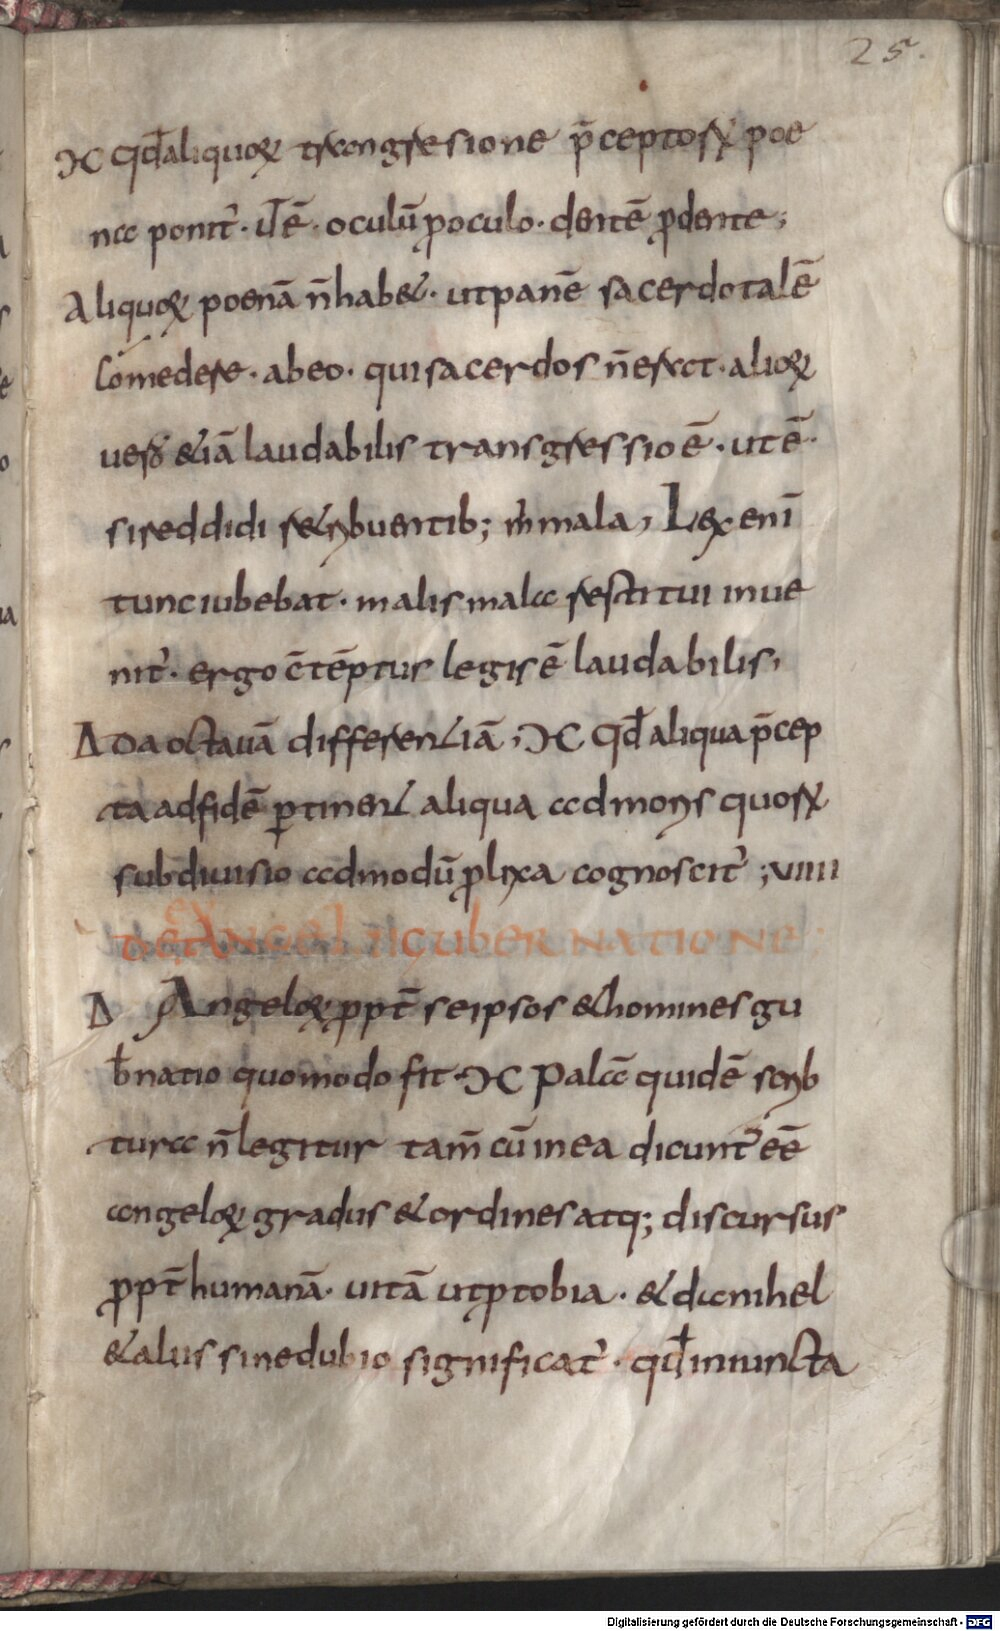 25.
ϽC qđ aliquorꝝ transgresione p̄ceptorꝝ poe
na ponit᷑· ut ē· oculū ꝓ oculo· dentē ꝓ dente;
Aliquorꝝ poenā n̄ habet· ut panē sacerdotalē
comedere· ab eo· qui sacerdos n̄ erat· aliorꝝ
uero etiā laudabilis transgressio ē· ut ē·
si reddidi retribuentib; m̄ mala, Lex eni̅
tunc iubebat· malis mala restitui inue
nit᷑· ergo c̄tēptus legis ē laudabilis,
Δ Da octauā differentiā, ϽC qđ aliqua p̄cep
ta ad fidē ꝑtinent aliqua ad mores quorꝝ
subdiuisio admodū ꝓlixa cognoscit᷑; VIIII
DE ANGELI GUBERNATIONE;
Δ Angelorꝝ ꝓpt̄ seipsos & homines gu
b̄natio quomodo fit ϽC Pala̅ quidē scrib
tura n̄ legitur tam̄ cū in ea dicunt᷑ eē
angelorꝝ gradus & ordines atq; discursus
ꝓpt̄ humanā· uitā ut ꝑ tobia· & danihel
& aliis sine dubio significat᷑· qđ iniuncta
Digitalisierung gefördert durch die Deutsche Forschungsgemeinschaft - DFG